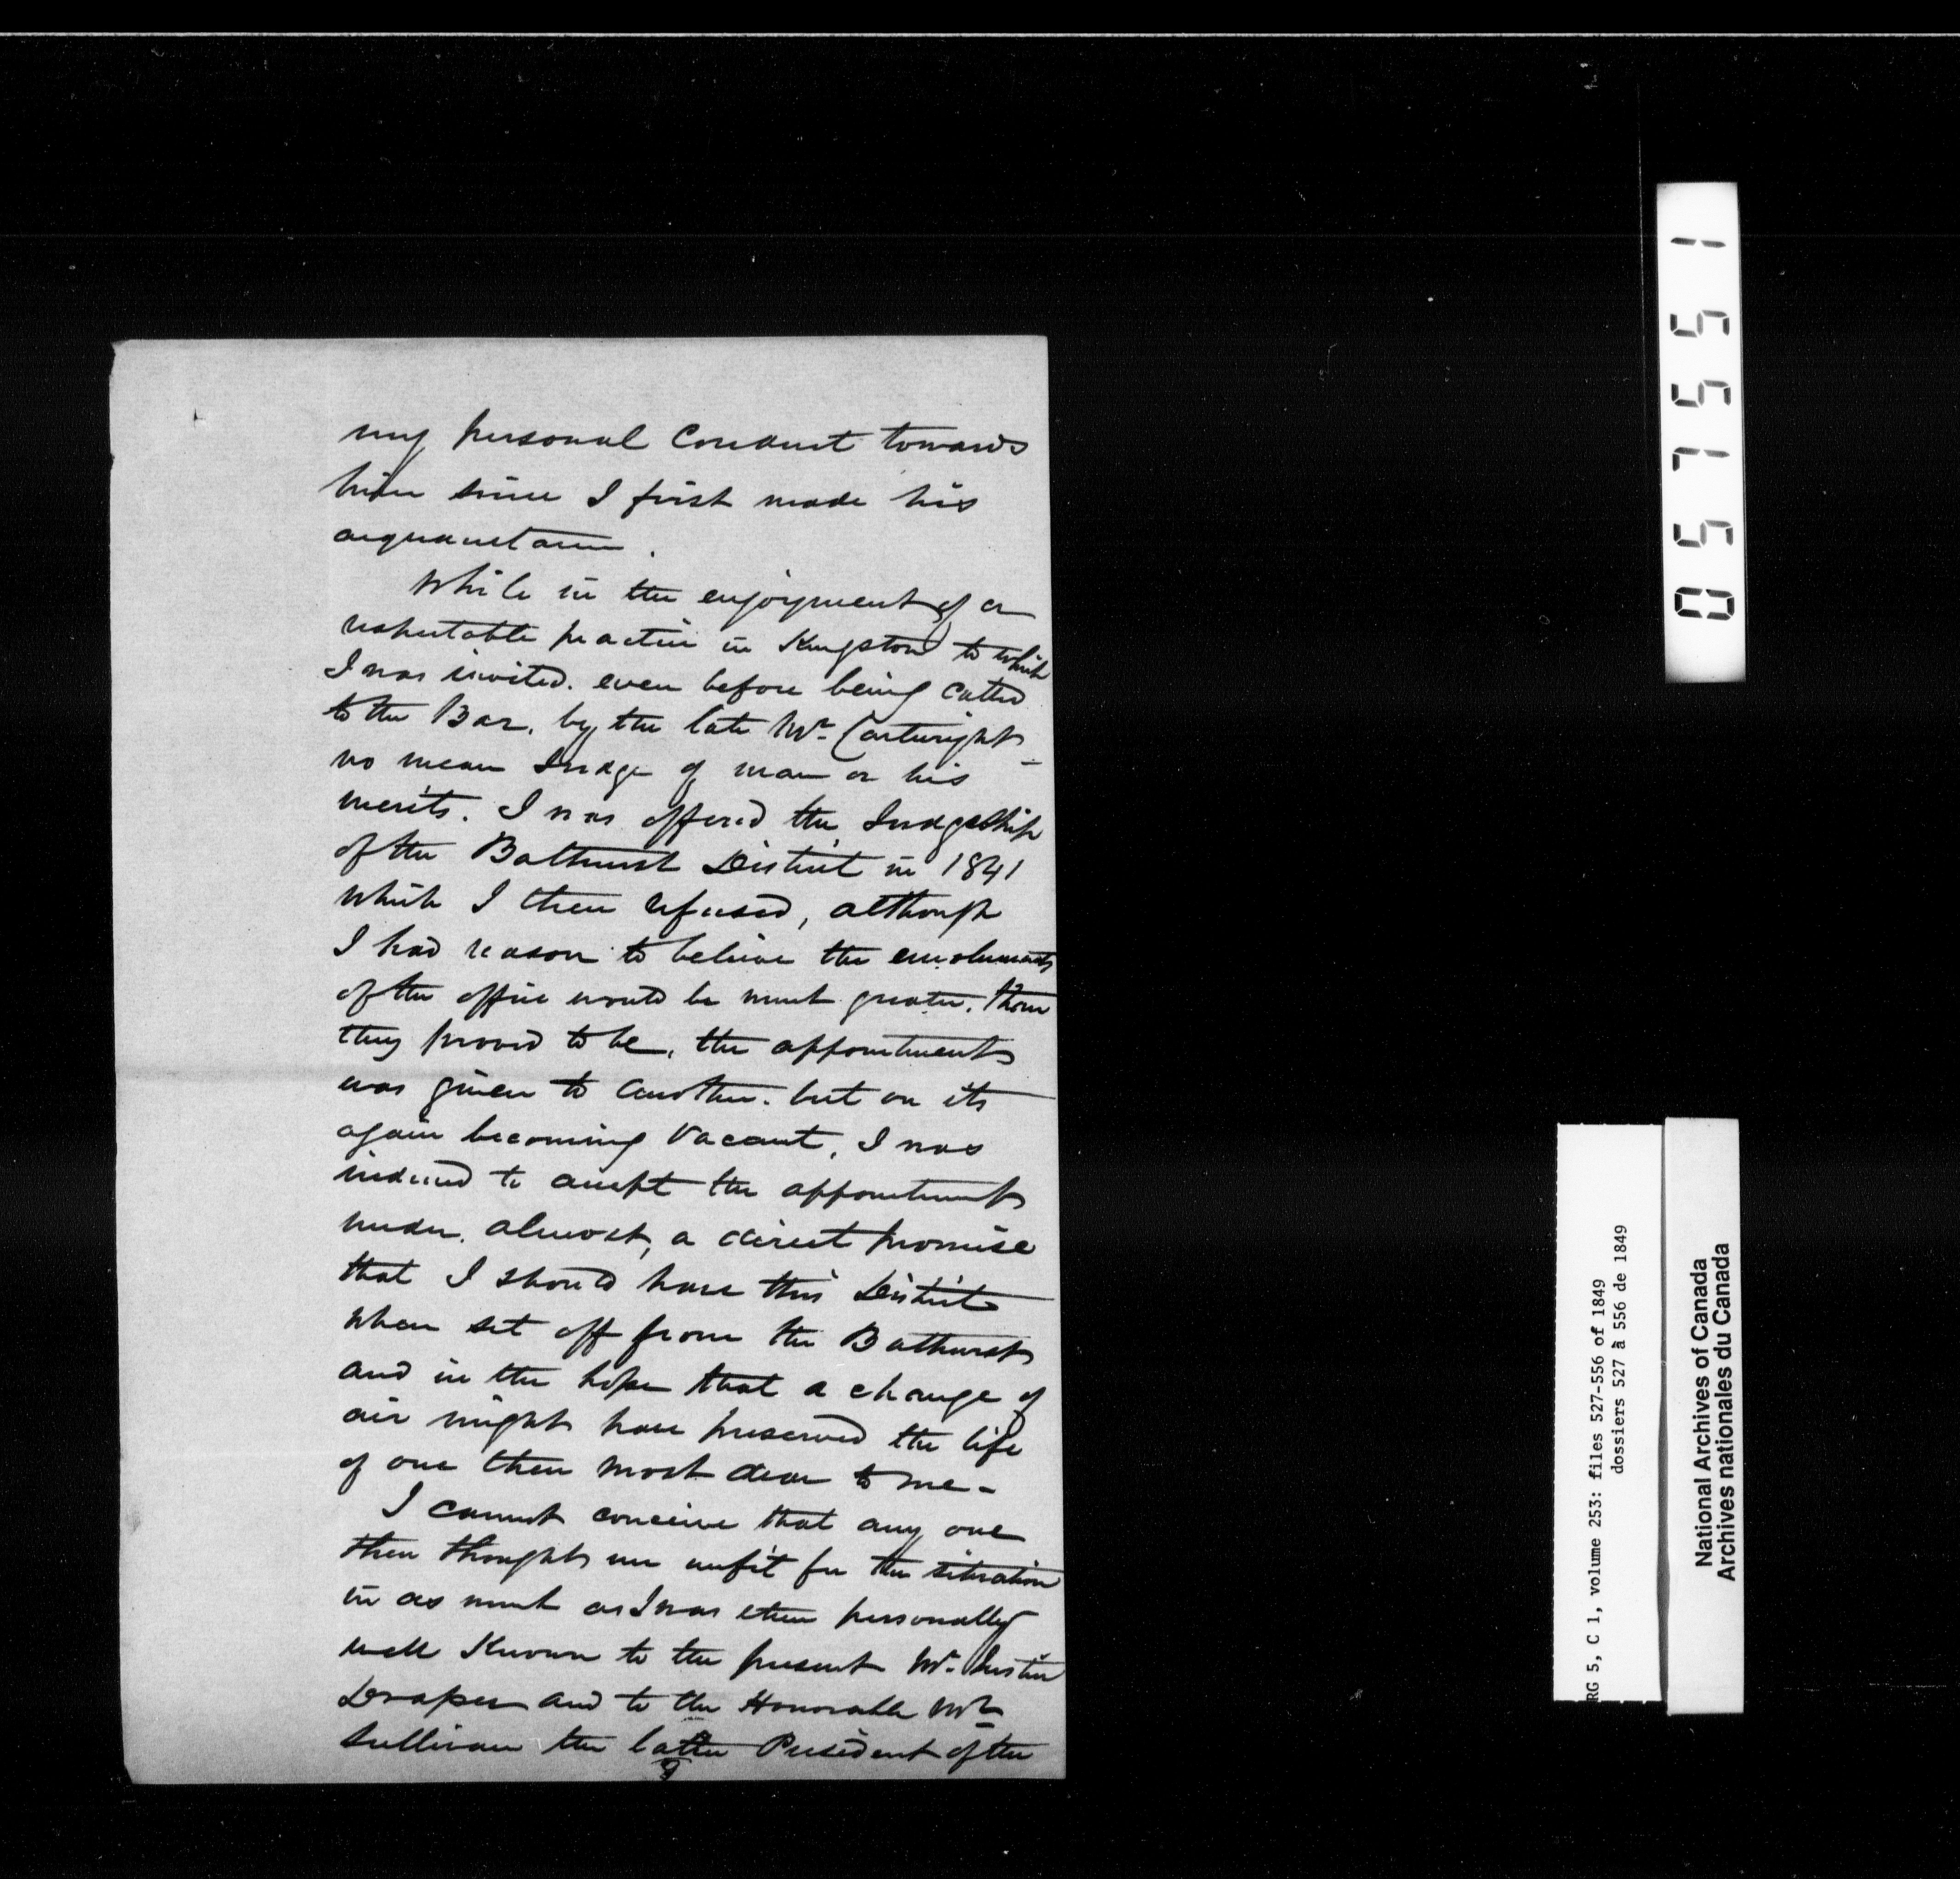 my personal Conduct towards
him since I first made his
acquaintance.
While in the enjoyment of a
respectable practice in Kingston to which
I was invited. even before being called
to the Bar. by the late Mr. Cartwright
no mean Judge of man or his
merits. I was offered the Judgeship
of the Bathurst District in 1841
which I then refused, although
I had reason to believe the emoluments
of the office would be much greater. than
they proved to be. the appointment
was given to another. but on its
again becoming vacant, I was
induced to accept the appointment
under. almost, a direct promise
that I should have this District
when set off from the Bathurst
and in the hope that a change of
air might have preserved the life
of one then most dear to me -
I cannot conceive that any one
then thought me unfit for the situation
in as much as I was then personally
well Known to the present Mr. Justice
Draper and to the Honorable Mr
Sullivan the latter President of the
057551
RG 5, C 1, volume 253: files 527-556 of 1849
dossiers 527 à 556 de 1849
National Archives of Canada
Archives nationales du Canada